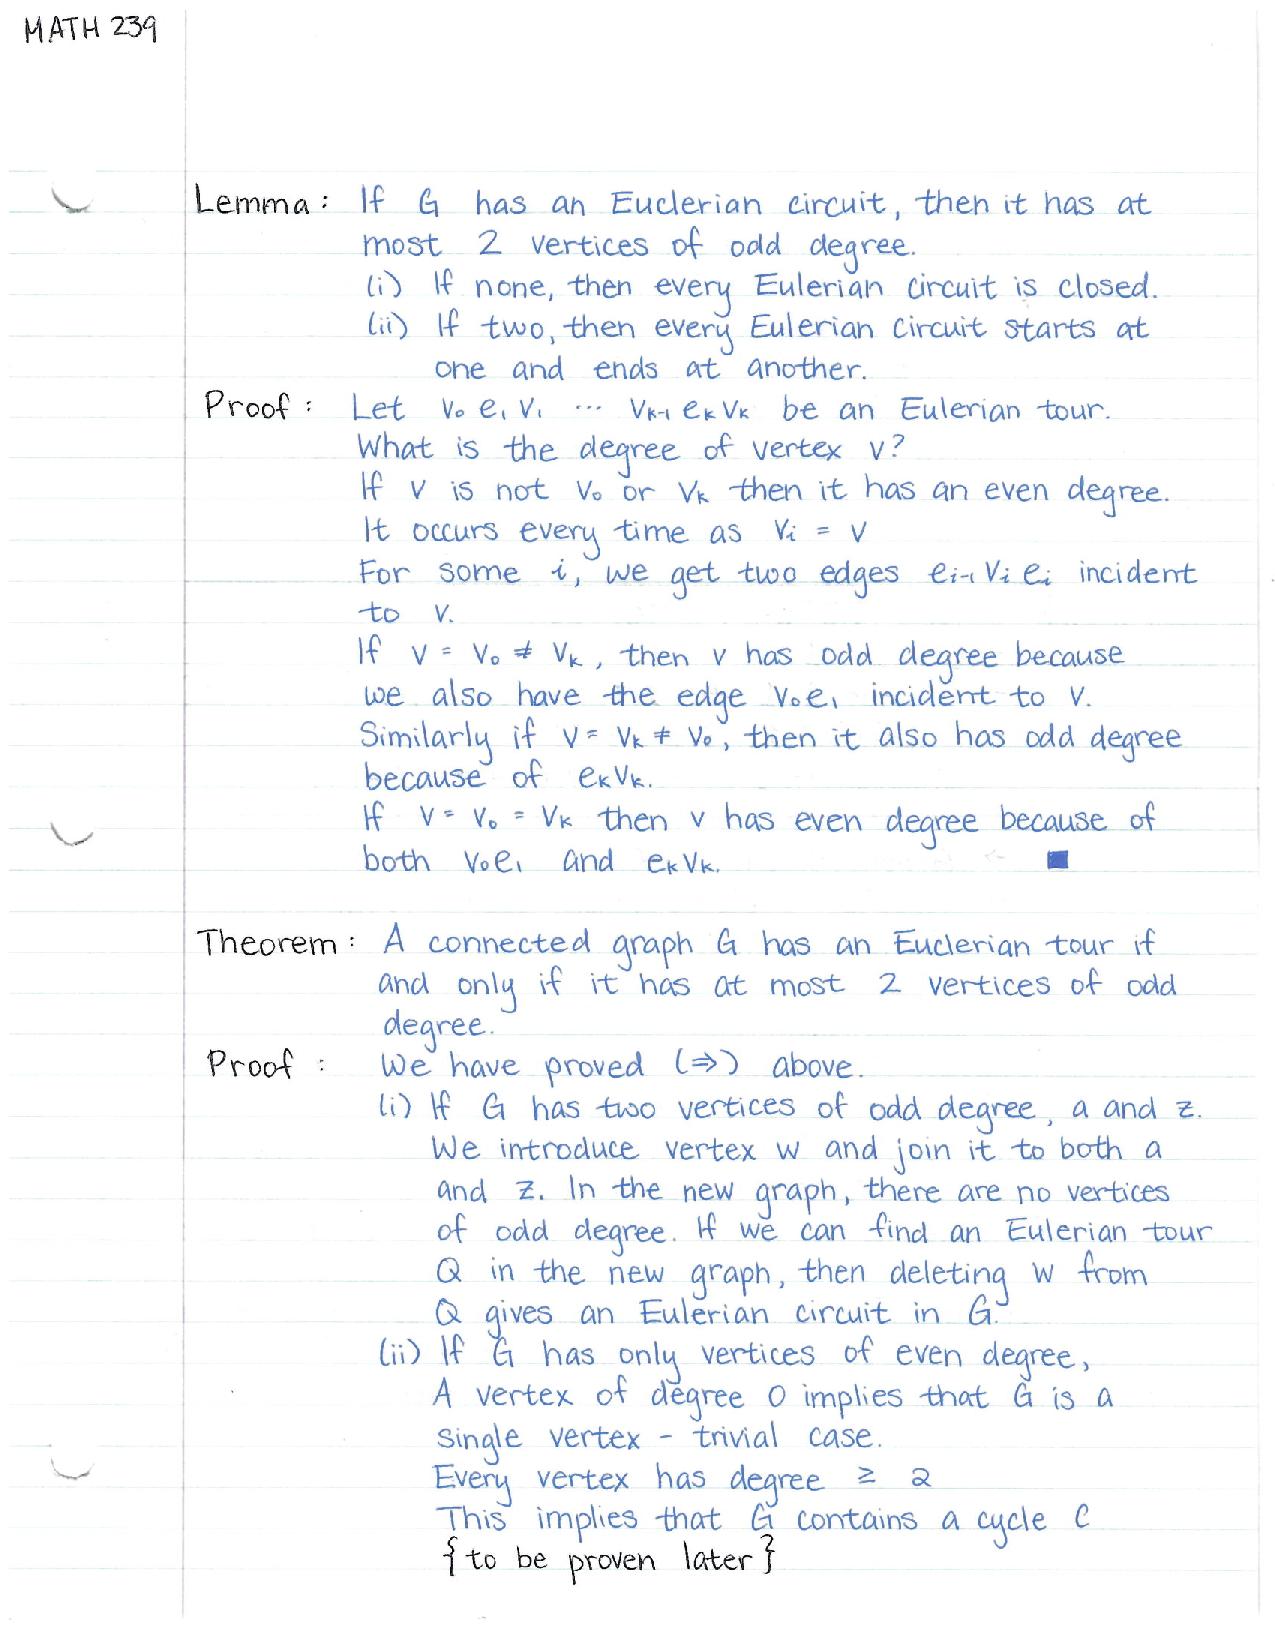 MATH 239
Lemma: If G has an Euclerian circuit, then it has at
most 2 vertices of odd degree.
(i) If none, then every Eulerian circuit is closed.
(ii) If two, then every Eulerian circuit starts at
one and ends at another.
Proof: Let v₀ e₁ v₁ ... vₖ₋₁ eₖ vₖ be an Eulerian tour.
What is the degree of vertex v?
If v is not v₀ or vₖ then it has an even degree.
It occurs every time as vᵢ = v
For some i, we get two edges eᵢ₋₁ vᵢ eᵢ incident
to v.
If v = v₀ ≠ vₖ, then v has odd degree because
we also have the edge v₀e₁ incident to v.
Similarly if v = vₖ ≠ v₀, then it also has odd degree
because of eₖvₖ.
If v = v₀ = vₖ then v has even degree because of
both v₀e₁ and eₖvₖ. ■
Theorem: A connected graph G has an Euclerian tour if
and only if it has at most 2 vertices of odd
degree.
Proof: We have proved (⇒) above.
(i) If G has two vertices of odd degree, a and z.
We introduce vertex w and join it to both a
and z. In the new graph, there are no vertices
of odd degree. If we can find an Eulerian tour
Q in the new graph, then deleting w from
Q gives an Eulerian circuit in G.
(ii) If G has only vertices of even degree,
A vertex of degree 0 implies that G is a
single vertex - trivial case.
Every vertex has degree ≥ 2
This implies that G contains a cycle C
{to be proven later}